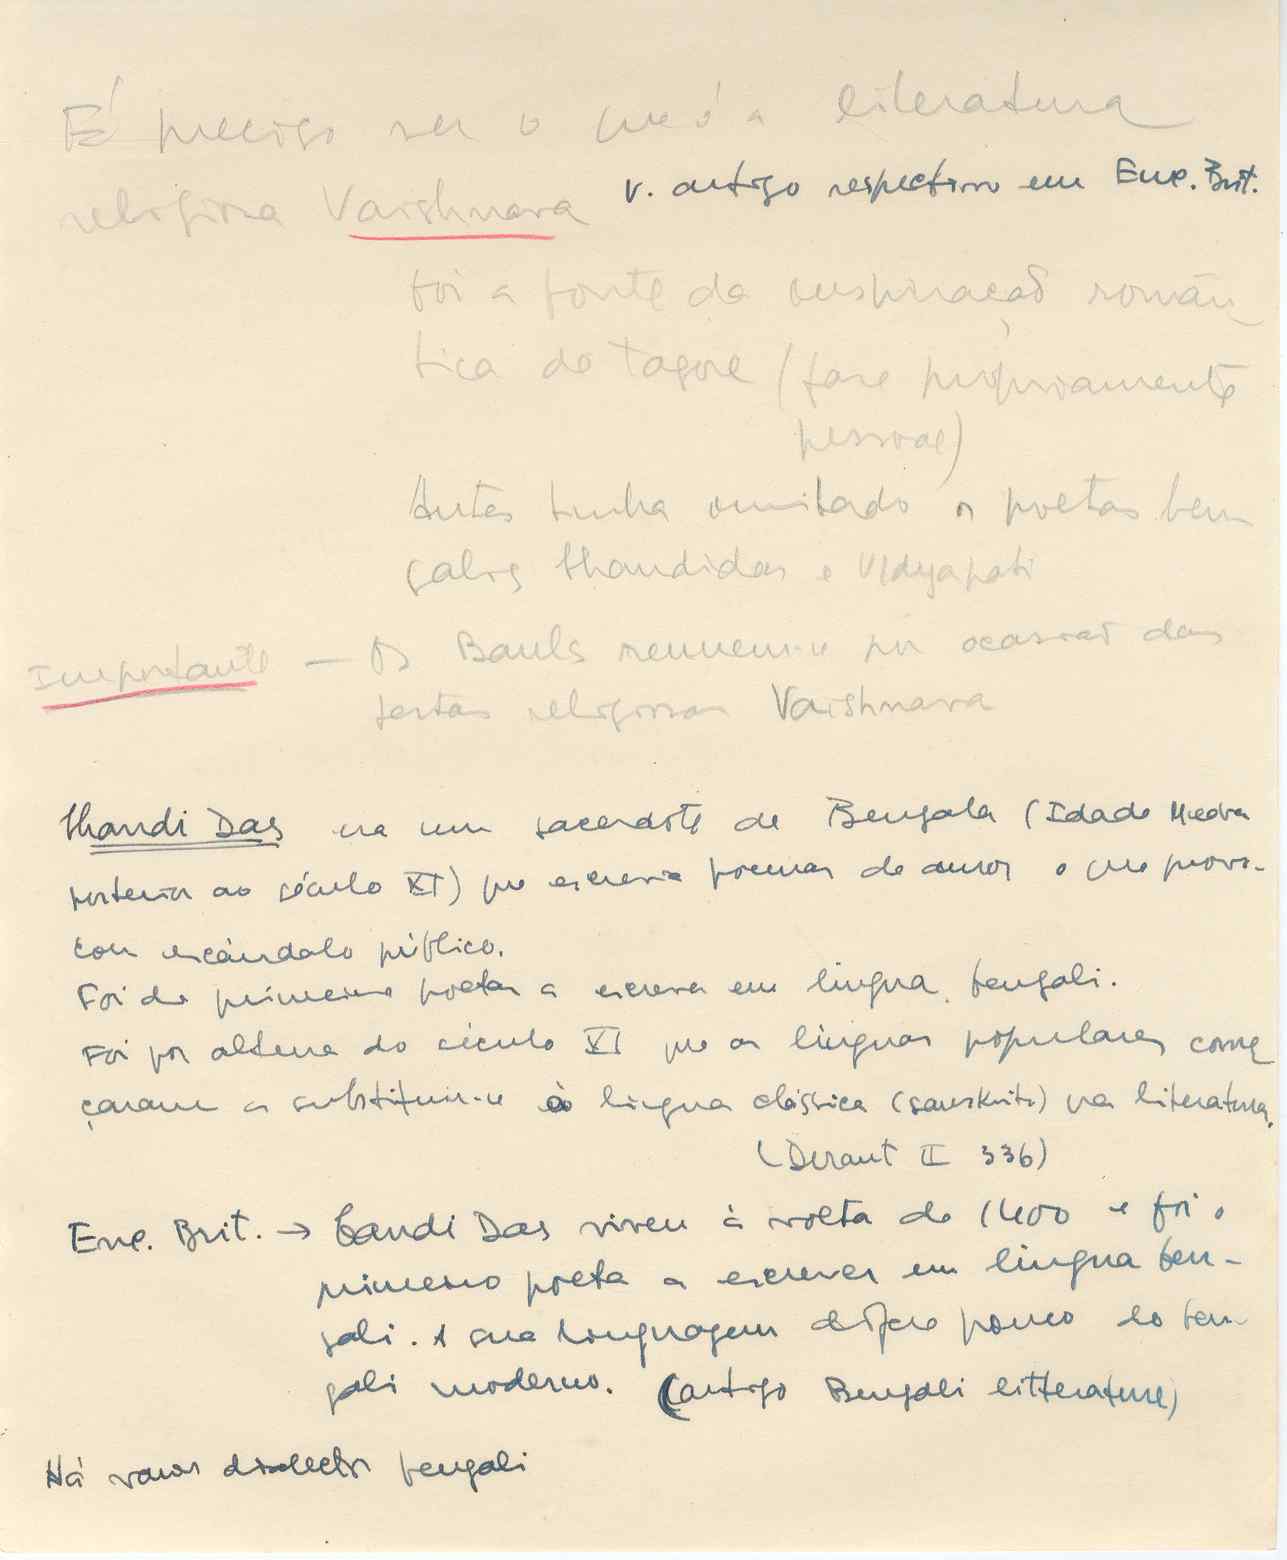 É preciso ver o que é a literatura
religiosa Vaishnava v. artigo respectivo em Enc. Brit.
foi a fonte da inspiração român-
tica de Tagore (fase propriamente
pessoal)
Antes tinha imitado os poetas ben-
galis Chandidas e Vidyapati
Importante — Os Bauls reunem-se por ocasião das
festas religiosas Vaishnava
Chandi Das era um sacerdote de Bengala (Idade Media
posterior ao século XI) que escrevia poemas de amor o que provo-
cou escândalo público.
Foi dos primeiros poetas a escrever em lingua bengali.
Foi por alturas do século XI que as linguas populares come
çaram a substituir-se à lingua clássica (sanskrito) na literatura.
(Durant II 336)
Enc. Brit. → Candi Das viveu à volta de 1400 e foi o
primeiro poeta a escrever em lingua ben-
gali. A sua linguagem difere pouco do ben-
gali moderno. (artigo Bengali litterature)
Há varios dialectos bengali